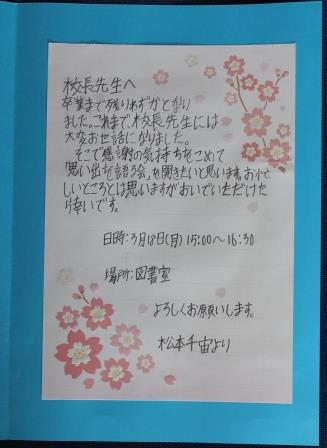 校長先生へ
卒業まで残りわずかとなり
ました。これまで、校長先生には
大変お世話になりました。
そこで感謝の気持ちをこめて
「思い出を語る会」を開きたいと思います。お忙
しいところとは思いますがおいでいただけた
ら幸いです。
日時:3月18日(月)15:00〜16:30
場所:図書室
よろしくお願いします。
松本千宙より